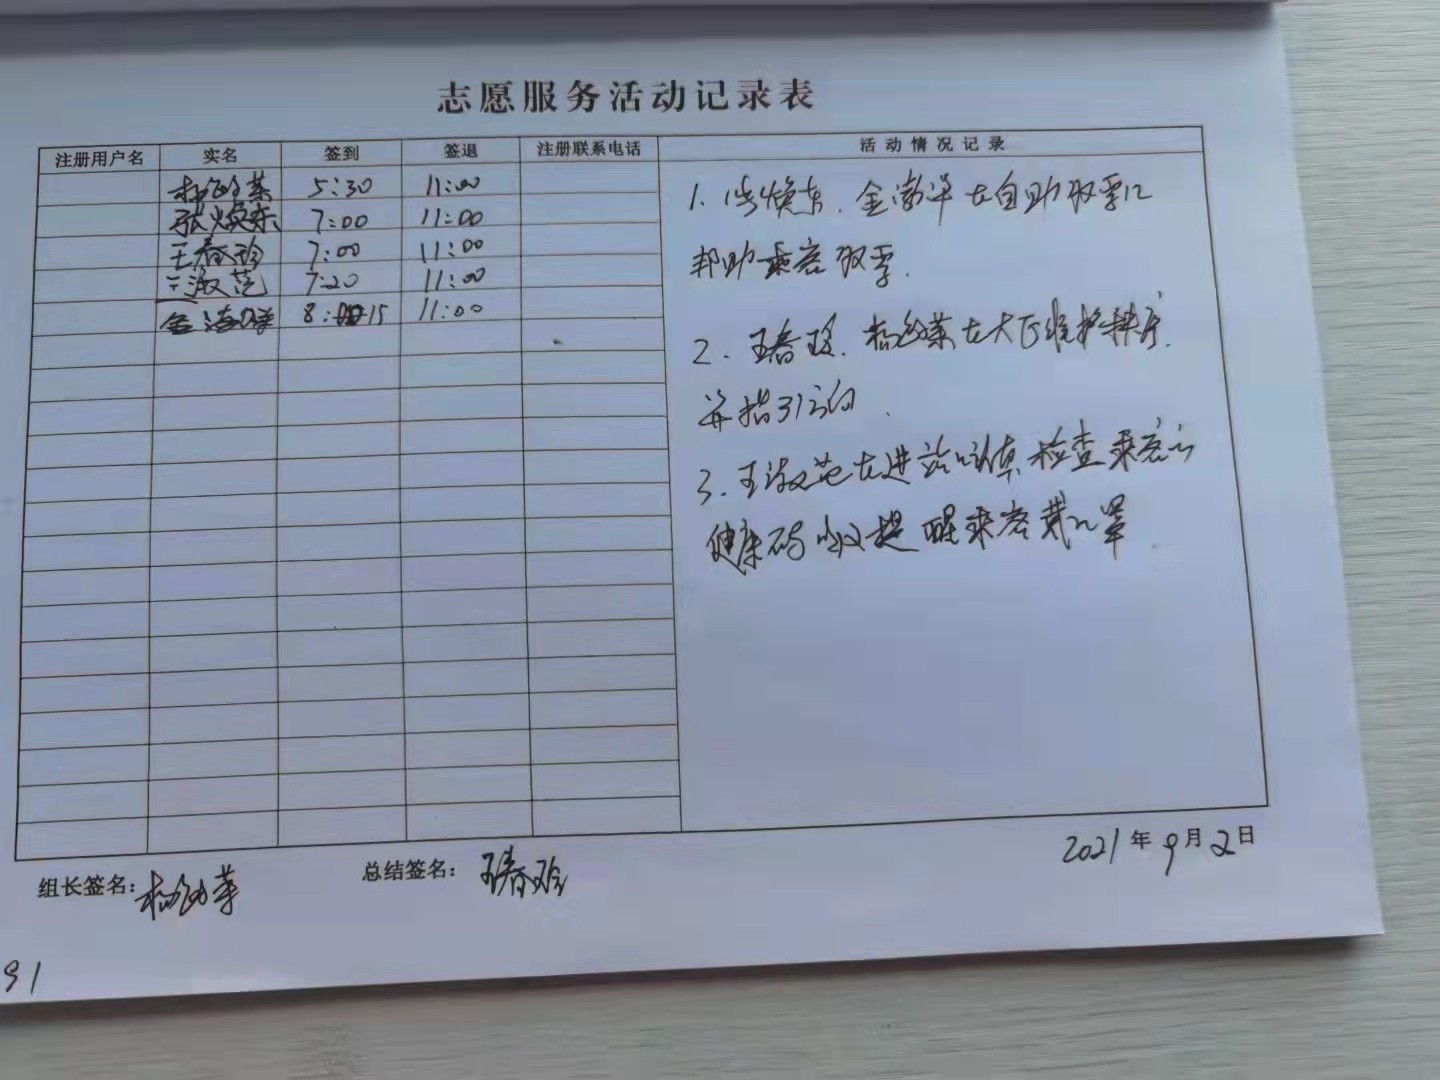 志愿服务活动记录表
注册用户名 实名 签到 签退 注册联系电话 活动情况记录
5:30 11:00
张焕东 7:00 11:00
王春玲 7:00 11:00
王淑范 7:20 11:00
8:15 11:00
1. 张焕东、金 在自助取票口
帮助乘客取票.
2. 王春玲、杨 在大厅维护秩序.
并指引方向.
3. 王淑范在进站口认真检查乘客的
健康码以及提醒乘客戴口罩.
组长签名: 杨 总结签名: 王春玲
2021年9月2日
91